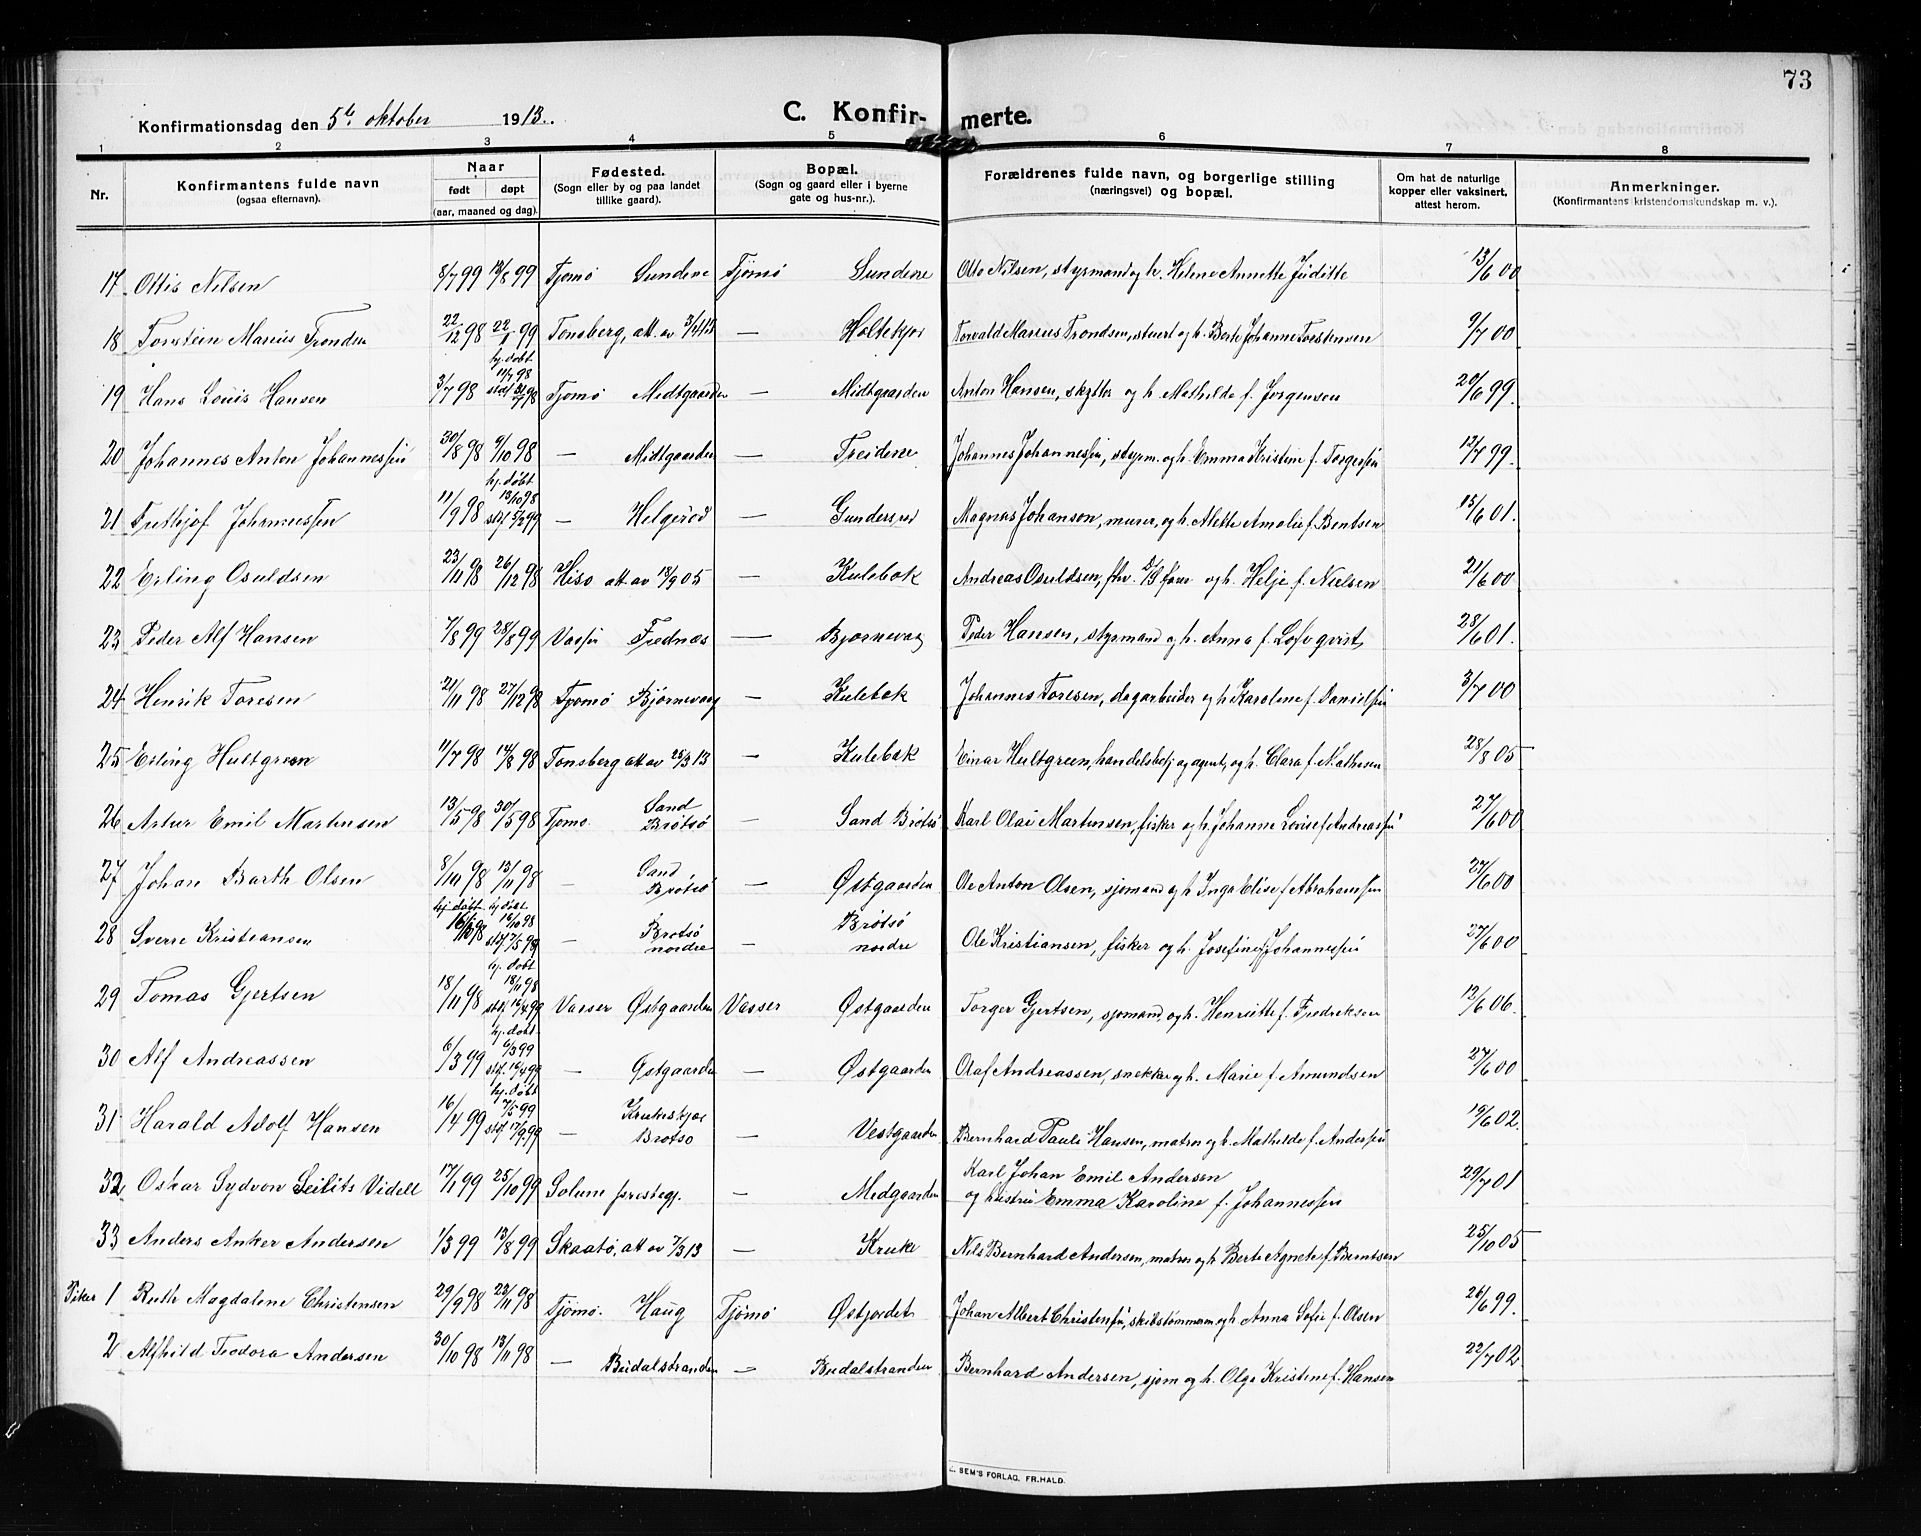 73
Konfirmationsdag den 5te oktober 1913. C. Konfirmerte.
1 2 3 4 5 6 7 8
Nr. Konfirmantens fulde navn (ogsaa efternavn). Naar født døpt (aar, maaned og dag). Fødested. (Sogn eller by og paa landet tillike gaard). Bopæl. (Sogn og gaard eller i byerne gate og hus-nr.). Forældrenes fulde navn, og borgerlige stilling (næringsvei) og bopæl. Om hat de naturlige kopper eller vaksinert, attest herom. Anmerkninger. (Konfirmantens kristendomskundskap m. v.).
17 Ottis Nilsen 8/7 99 13/8 99 Tjømø Sundene Tjømø Sundene Otto Nilsen, styrmand og h. Helene Annette Juditte 13/6 00
18 Torstein Marius Tronden 22/12 98 22/1 99 Tønsberg, att. av — Holtekjær Torvald Marius Trondsen, stuert og h. Berte Johanne Torstensen 9/7 00
19 Hans Louis Hansen 3/7 98 hj. døbt 11/7 98 stdf. Tjømø Midtgaarden — Midtgaarden Anton Hansen, skytter og h. Mathilde f. Jørgensen 20/6 99.
20 Johannes Anton Johannessen 30/8 98 9/10 98 — Midtgaarden — Treidene Johannes Johannessen, styrm. og h. Emma Kristine f. Torgersen 12/7 99.
21 Frithjof Johannessen 11/9 98 hj. døbt 13/10 98 stdf 5/2 99 — Helgerød — Gundersrød Magnus Johanson, murer, og h. Alette Amalie f. Bentsen 15/6 01.
22 Erling Osuldsen 23/11 98 26/12 98 Hisø att av 18/9 05 — Kulebæk Andreas Osuldsen, fhv. og h. Helje f. Nielsen 21/6 00
23 Peder Alf Hansen 7/8 99 28/8 99 Vasser Fjednæs — Bjørnevaag Peder Hansen, styrmand og h. Anna f. Lofvqvist 28/6 01.
24 Henrik Toresen 21/11 98 27/12 98 Tjømø Bjørnevaag — Kulebæk Johannes Toresen, dagarbeider og h. Karoline f. Danielsen 3/7 00
25 Erling Hultgreen 11/7 98 14/8 98 Tønsberg att av 25/3 13 — Kulebæk Einar Hultgreen, handelsbetj og agent, og h. Clara f. Mathisen 28/8 05
26 Artur Emil Martinsen 13/5 98 30/5 98 Tjømø. Sand Brøtsø — Sand Brøtsø Karl Olai Martinsen, fisker og h. Johanne Lovise f Andreassen 27/6 00
27 Johan Barth Olsen 8/10 98 13/11 98 — Sand Brøtsø — Østgaarden Ole Anton Olsen, sjømand og h. Inga Elise f Abrahamsen 27/6 00
28 Sverre Kristiansen 16/10 98 hj døbt 16/10 98 stdf 7/5 99 — Brøtsø nordre Brøtsø nordre Ole Kristiansen, fisker og h. Josefine f Johannessen 27/6 00
29 Tomas Gjertsen 18/11 98 hj. døbt 18/11 98 stdf. 16/4 99 Vasser Østgaarden Vasser Østgaarden Torger Gjertsen, sjømand, og h. Henriette f. Fredriksen 12/6 06.
30 Alf Andreassen 6/3 99 hj. døbt 6/3 99 stdf. 16/4 99 — Østgaarden — Østgaarden Olaf Andreassen, snekker og h. Marie f. Amundsen 27/6 00
31 Harald Adolf Hansen 16/4 99 hj. døbt 7/5 99 stdf 17/9 99 — Krukeskjær Brøtsø — Vestgaarden Bernhard Pauli Hansen, matros og h. Mathilde f. Andersen 19/6 02
32 Oskar Sydvon Seilits Videll 17/1 99 25/10 99 Solum prestegj. — Midgaarden Karl Johan Emil Andersen
og hustru Emma Karoline f. Johannessen 29/7 01
33 Anders Anker Andersen 1/3 99 13/8 99 Skaatø, att av 7/3 13 — Kruke Nils Bernhard Andersen, matros og h. Berte Agnete f. Berntsen 25/10 05
Piker 1 Ruth Magdalene Christensen 29/9 98 23/11 98 Tjømø. Haug Tjømø Østjordet Johan Albert Christensen, skibstømmerm og h Anna Sofie f. Olsen 26/6 99.
2 Alfhild Teodora Andersen 30/10 98 13/11 98 — Budalstranden — Budalstranden Bernhard Andersen, sjøm og h. Olga Kristine f. Hansen 22/7 02
SEM'S FORLAG, FR.HALD.